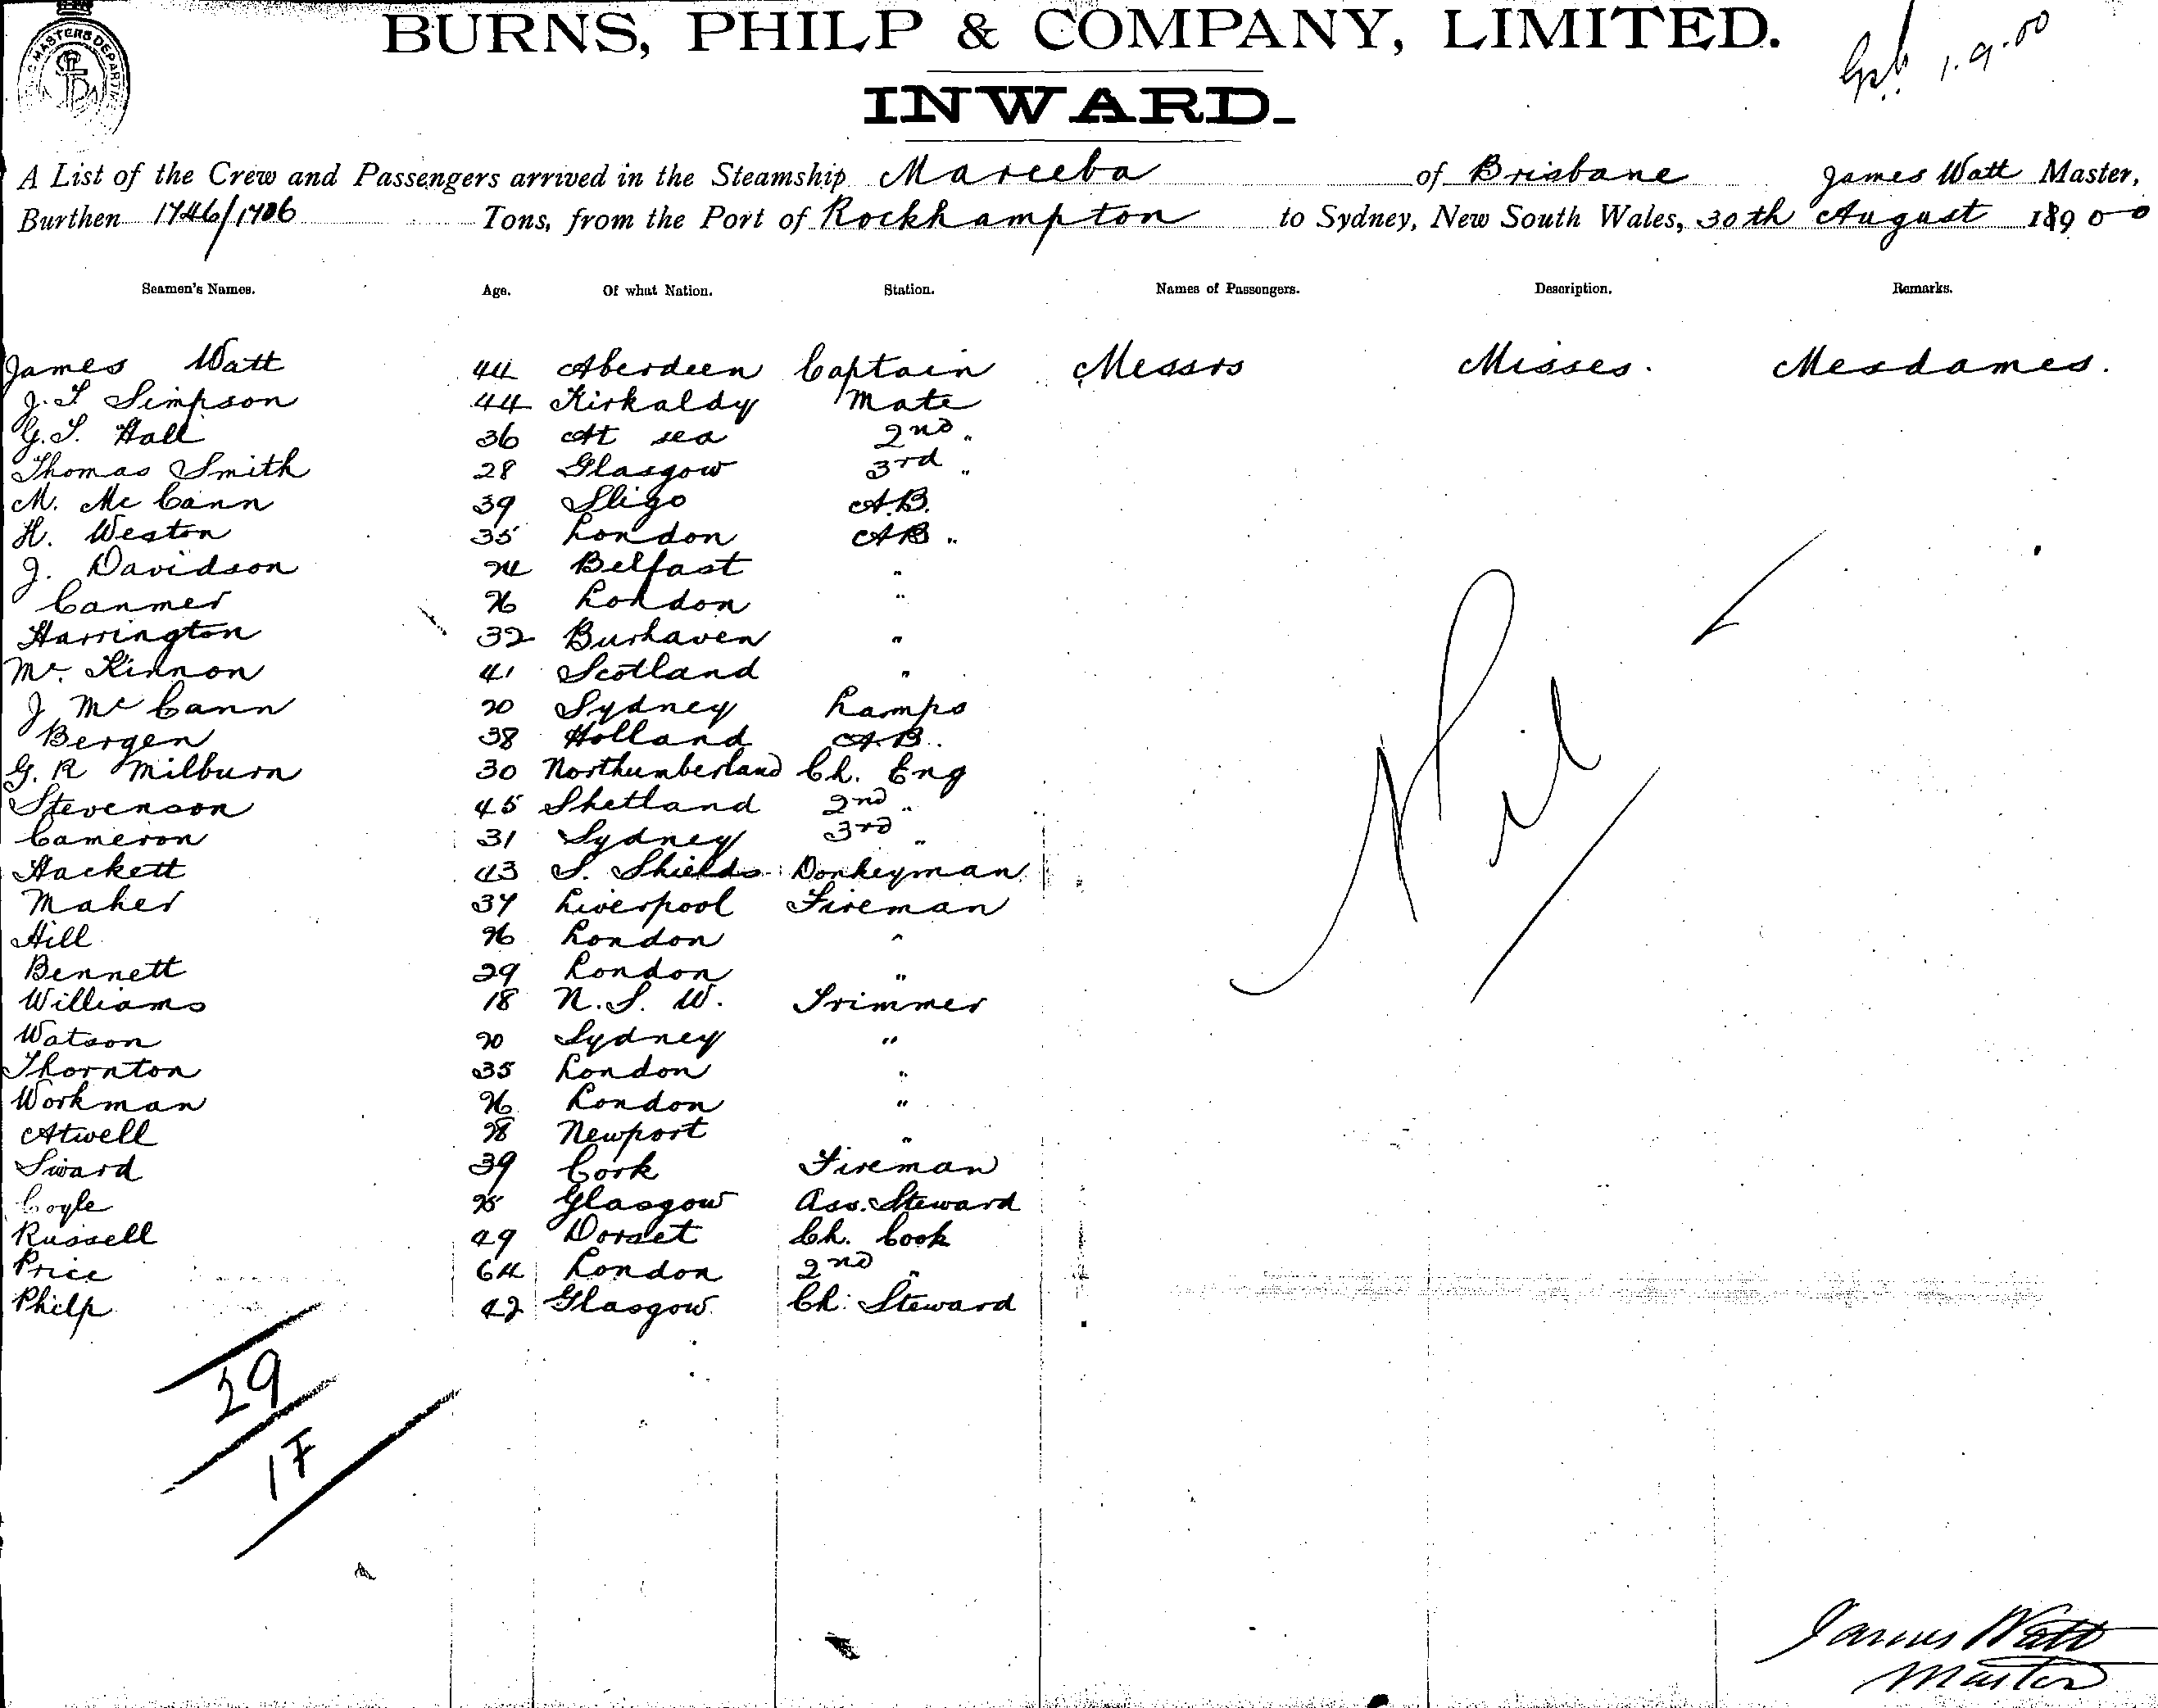 BURNS, PHILP & COMPANY, LIMITED.
1.9.00
INWARD.
A List of the Crew and Passengers arrived in the Steamship Mareeba of Brisbane James Watt Master,
Burthen 1746/1706 Tons, from the Port of Rockhampton to Sydney, New South Wales, 30th August 18900
Seamen's Names. Age. Of what Nation. Station. Names of Passengers. Description. Remarks.
James Watt 44 Aberdeen Captain Messrs Misses. Mesdames.
J. T Simpson 44 Kirkaldy Mate
G. S. Hall 36 At sea 2nd "
Thomas Smith 28 Glasgow 3rd "
M. Mc Cann 39 Sligo A.B.
H. Weston 35 London AB "
J. Davidson 24 Belfast "
Canmer 26 London "
Harrington 32 Burhaven "
Mc Kinnon 41 Scotland "
J Mc Cann 20 Sydney Lamps
Bergen 38 Holland A.B.
G. R Milburn 30 Northumberland Ch. Eng
Stevenson 45 Shetland 2nd "
Cameron 31 Sydney 3rd "
Hackett 43 S. Shields Donkeyman
Maher 37 Liverpool Fireman
Hill 26 London "
Bennett 29 London "
Williams 18 N.S.W. Trimmer
Watson 20 Sydney "
Thornton 35 London "
Workman 26 London "
Atwell 28 Newport "
Siward 39 Cork Fireman
Coyle 25 Glasgow Ass. Steward
Russell 49 Dorset Ch. Cook
Price 64 London 2nd "
Philp 42 Glasgow Ch: Steward
Nil
29
1F
James Watt
Master